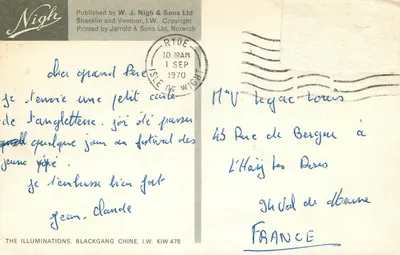 Nigh
Published by W. J. Nigh & Sons Ltd
Shanklin and Ventnor, I.W. Copyright
Printed by Jarrold & Sons Ltd, Norwich
RYDE
10 30AM
1 SEP
1970
ISLE OF WIGHT
cher grand Père
je t'envoie une petit carte
de d'angleterre. j'ai été passer
quelque jour au festival des
jeune
je t'embrasse bien fort
jean. claude
THE ILLUMINATIONS, BLACKGANG CHINE, I.W. KIW 478
Louis
45 Rue de à
L'Haÿ les Roses
94 Val de Marne
FRANCE